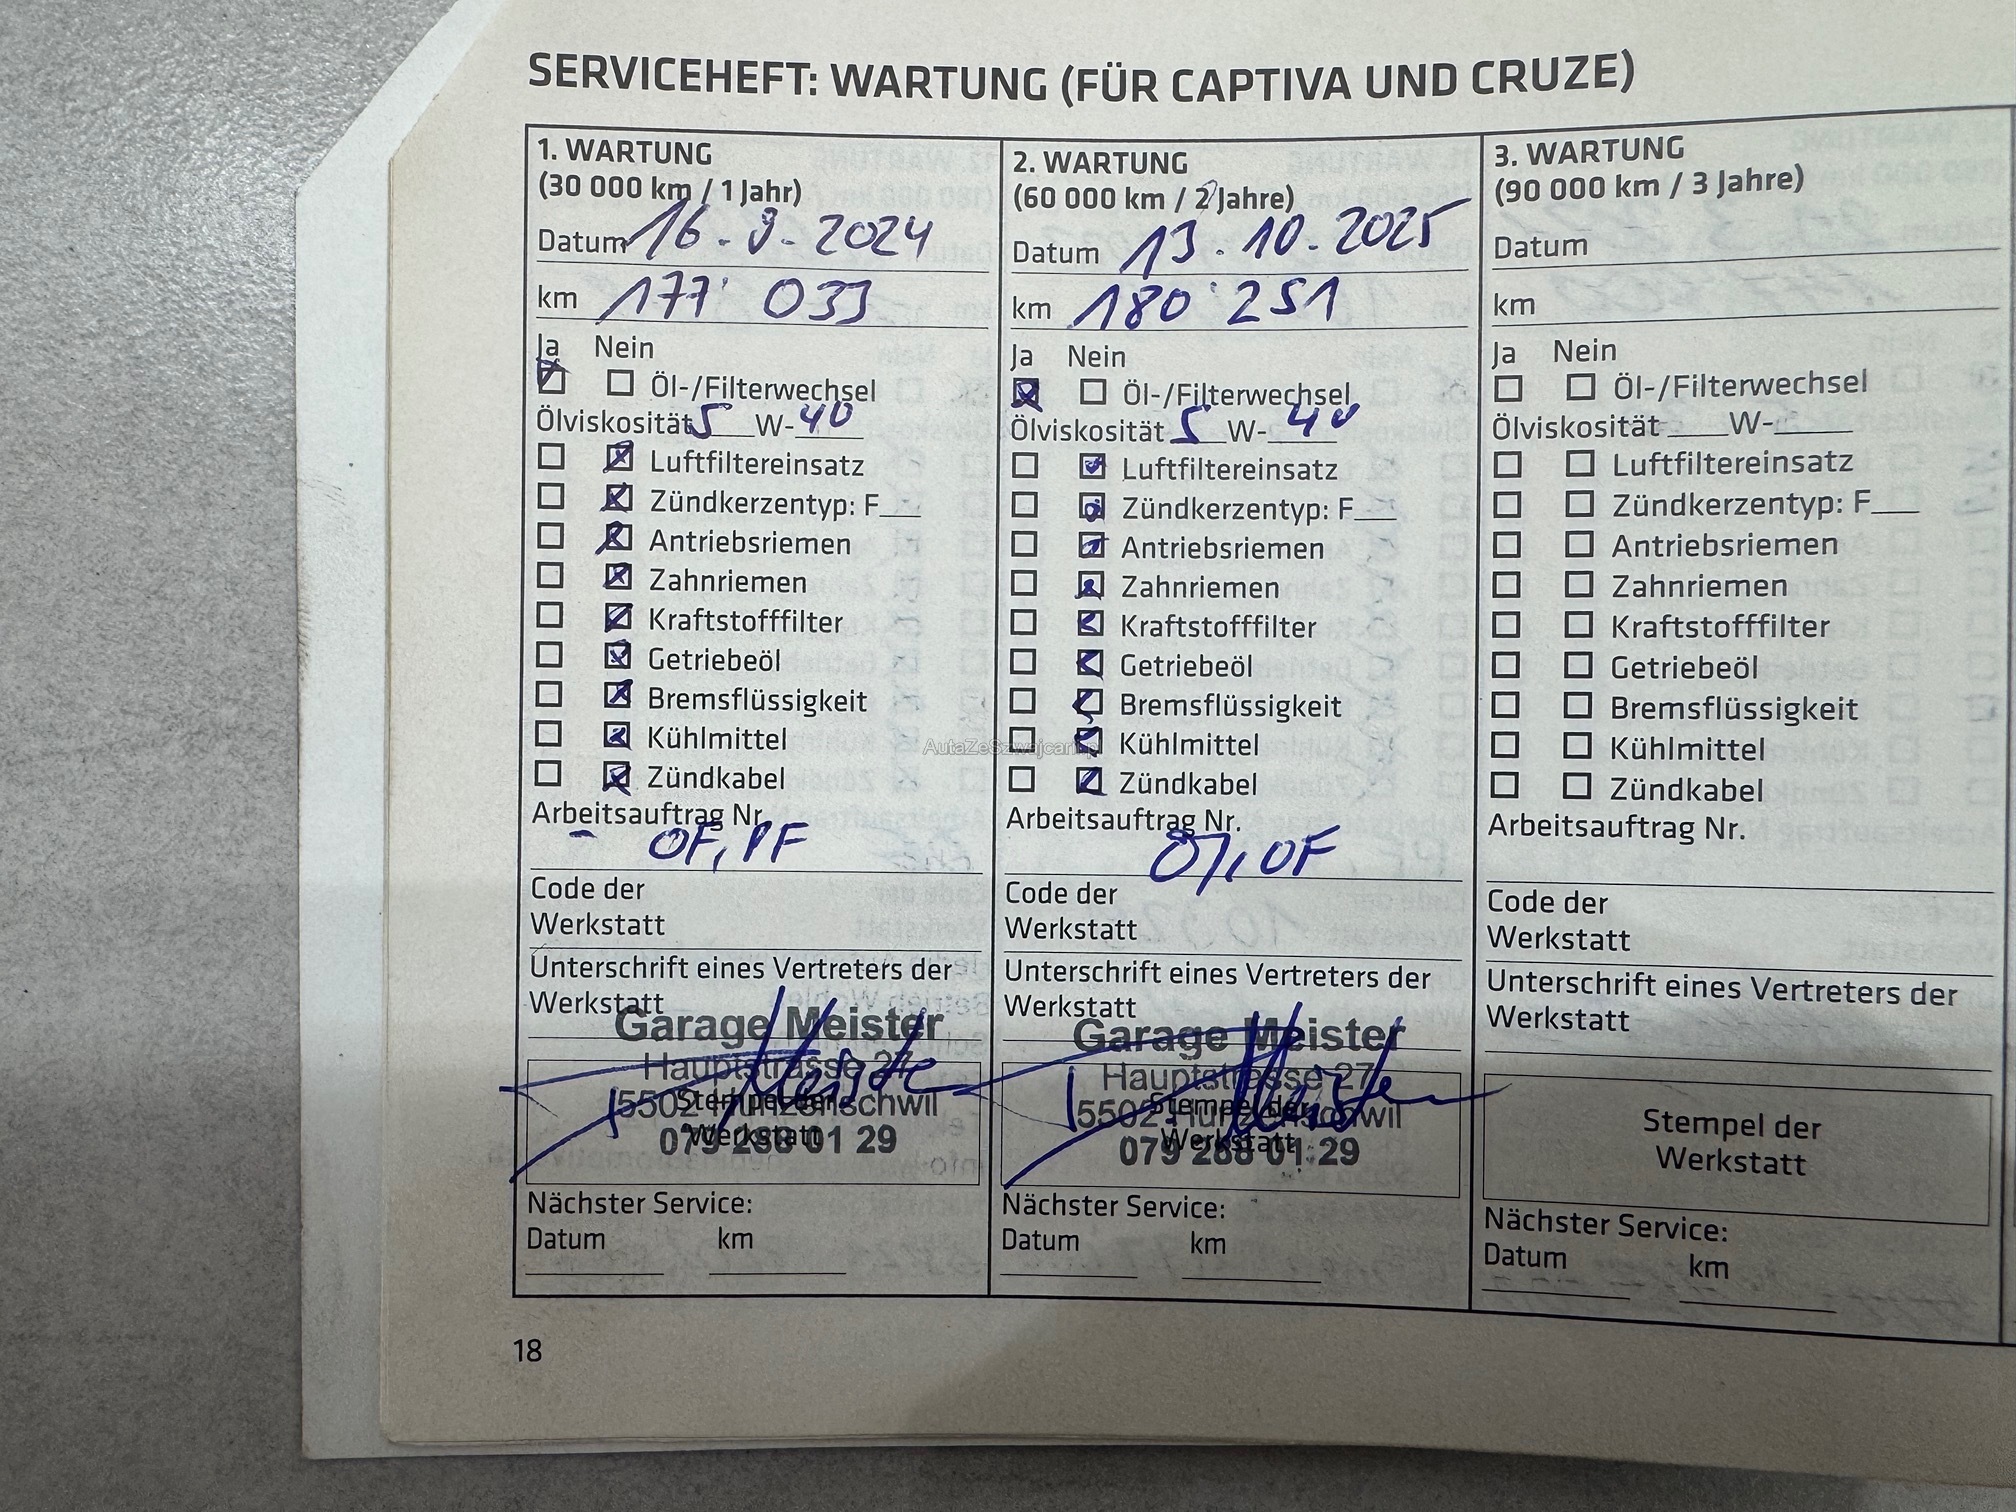 SERVICEHEFT: WARTUNG (FÜR CAPTIVA UND CRUZE)
1. WARTUNG
(30 000 km / 1 Jahr)
Datum 16.9.2024
km 177'033
Ja Nein
Öl-/Filterwechsel
Ölviskosität 5 W-40
Luftfiltereinsatz
Zündkerzentyp: F___
Antriebsriemen
Zahnriemen
Kraftstofffilter
Getriebeöl
Bremsflüssigkeit
Kühlmittel
Zündkabel
Arbeitsauftrag Nr.
- OF, PF
Code der
Werkstatt
Unterschrift eines Vertreters der
Werkstatt
Garage Meister
Hauptstrasse 27
5502 Hunzenschwil
Stempel der
Werkstatt
079 288 01 29
Nächster Service:
Datum km
2. WARTUNG
(60 000 km / 2 Jahre)
Datum 13.10.2025
km 180'251
Ja Nein
Öl-/Filterwechsel
Ölviskosität 5 W-40
Luftfiltereinsatz
Zündkerzentyp: F___
Antriebsriemen
Zahnriemen
Kraftstofffilter
Getriebeöl
Bremsflüssigkeit
Kühlmittel
Zündkabel
Arbeitsauftrag Nr.
OF
Code der
Werkstatt
Unterschrift eines Vertreters der
Werkstatt
Garage Meister
Hauptstrasse 27
5502 Hunzenschwil
Stempel der
Werkstatt
079 288 01 29
Nächster Service:
Datum km
3. WARTUNG
(90 000 km / 3 Jahre)
Datum
km
Ja Nein
Öl-/Filterwechsel
Ölviskosität ___W-___
Luftfiltereinsatz
Zündkerzentyp: F___
Antriebsriemen
Zahnriemen
Kraftstofffilter
Getriebeöl
Bremsflüssigkeit
Kühlmittel
Zündkabel
Arbeitsauftrag Nr.
Code der
Werkstatt
Unterschrift eines Vertreters der
Werkstatt
Stempel der
Werkstatt
Nächster Service:
Datum km
18